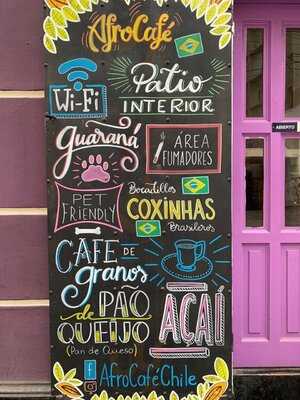 AfroCafé
Wi-Fi
Patio
INTERIOR
Guaraná
ÁREA
FUMADORES
PET
FRIENDLY
Bocadillos
COXINHAS
Brasileros
CAFE DE
granos
PÃO
de
QUEIJO
(Pan de Queso)
AÇAÍ
AfroCaféChile
ABIERTO